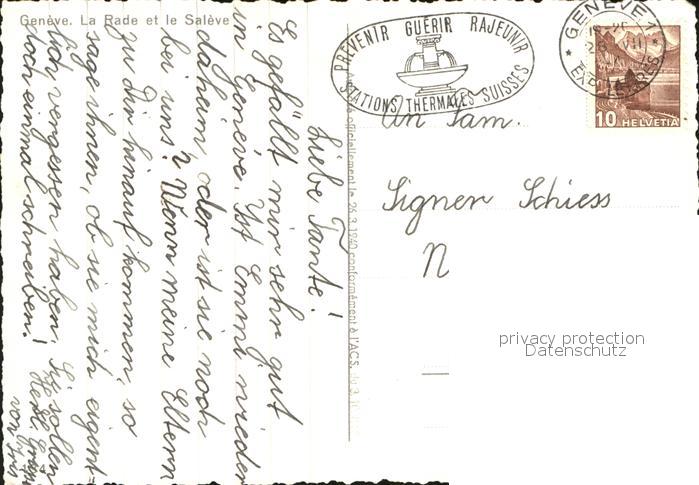 Genève. La Rade et le Salève
PRÉVENIR GUÉRIR RAJEUNIR
STATIONS THERMALES SUISSES
GENÈVE 1
10 HELVETIA
An Fam.
Signer Schiess
N
privacy protection
Datenschutz
officiellement le 26.3.1940 conformément à l'A.C.S. du 3.
Liebe Tante!
Es gefällt mir sehr gut
in Genève. Ist Emmi wieder
daheim, oder ist sie noch
bei uns? Wenn meine Eltern
zu Dir hinauf kommen, so
sage ihnen, ob sie mich eigent=
lich vergessen haben. Sie sollen
doch einmal schreiben!
Herzl. Grüsse
von